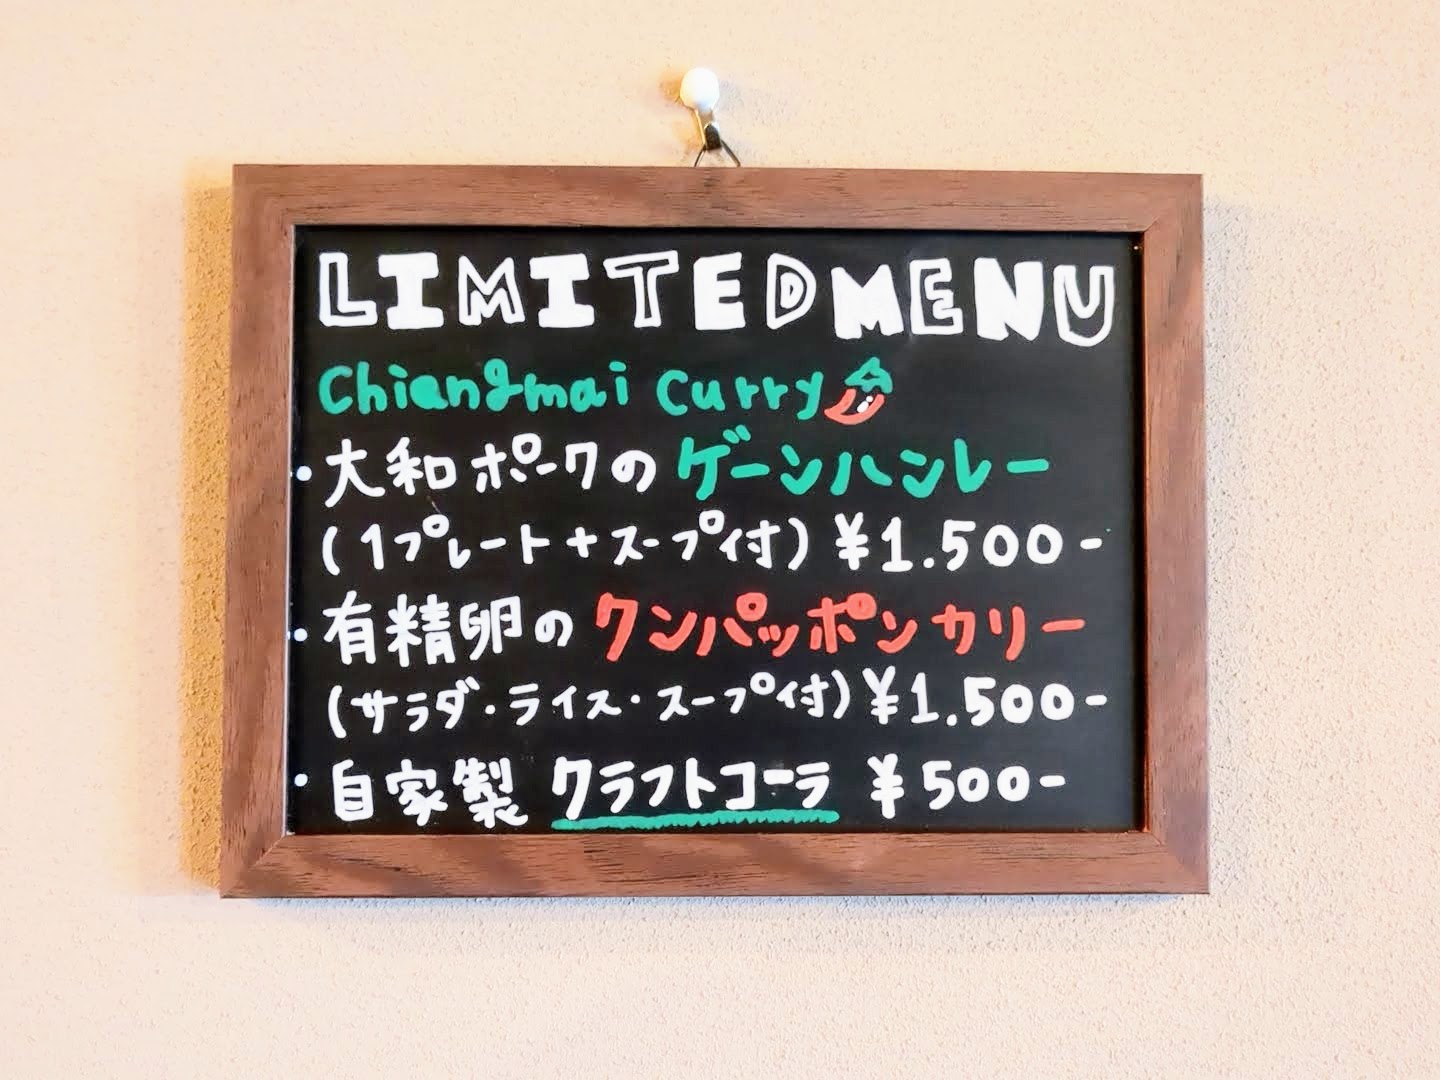 LIMITED MENU
Chiangmai Curry
・大和ポークのゲーンハンレー
(1プレート+スープ付) ¥1.500-
・有精卵のクンパッポンカリー
(サラダ・ライス・スープ付) ¥1.500-
・自家製 クラフトコーラ ¥500-